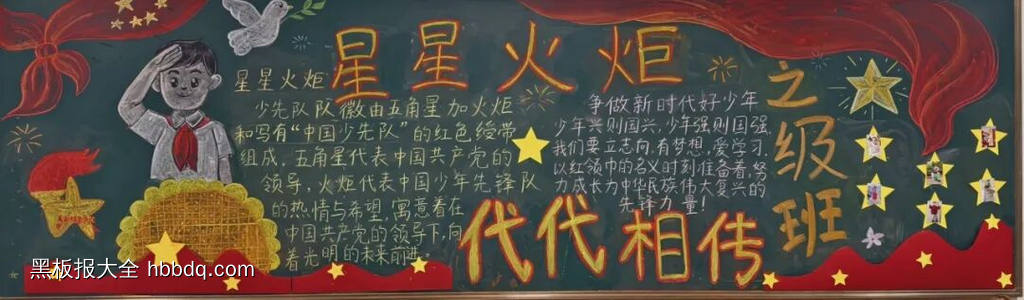 星星火炬
代代相传
之级班
星星火炬
少先队队徽由五角星加火炬
和写有“中国少先队”的红色绶带
组成，五角星代表中国共产党的
领导，火炬代表中国少年先锋队
的热情与希望，寓意着在
中国共产党的领导下，向
着光明的未来前进。
争做新时代好少年
少年兴则国兴，少年强则国强
我们要立志向，有梦想，爱学习，
以红领巾的名义时刻准备着，努
力成长为中华民族伟大复兴的
先锋力量！
黑板报大全 hbbdq.com